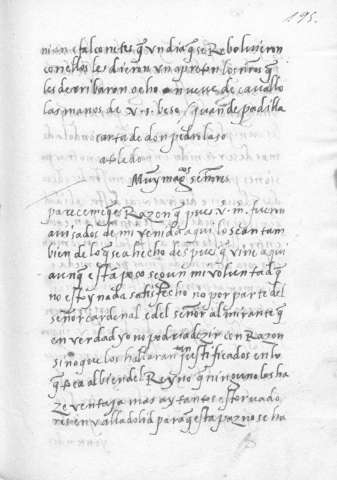 195.
nian falconetes q̃ un dia q̃ se Rebolvieron
con ellos les dieron un apreton los nr̃os q̃
les derribaron ocho o nueve de cavallo
las manos de v. s. beso / juan de padilla
carta de don pedro laso
a toledo
Muy magcos señores
pareceme q̃ es Razon q̃ pues v. m. fueron
avisados de mi venida aqui lo sean tam
bien de lo q̃ se a hecho despues q̃ vine aqui
aunq̃ esta poco segun mi voluntad q̃
no estoy nada satisfecho no por parte del
señor cardenal e del señor almirante q̃
en verdad yo no podria dezir con Razon
sino q̃ los hallaran justificados en lo
q̃ sea al bien del Reyno q̃ ninguno los ha
ze ventaja mas ay tantos estorvado
res en valladolid para q̃ esta paz no se ha